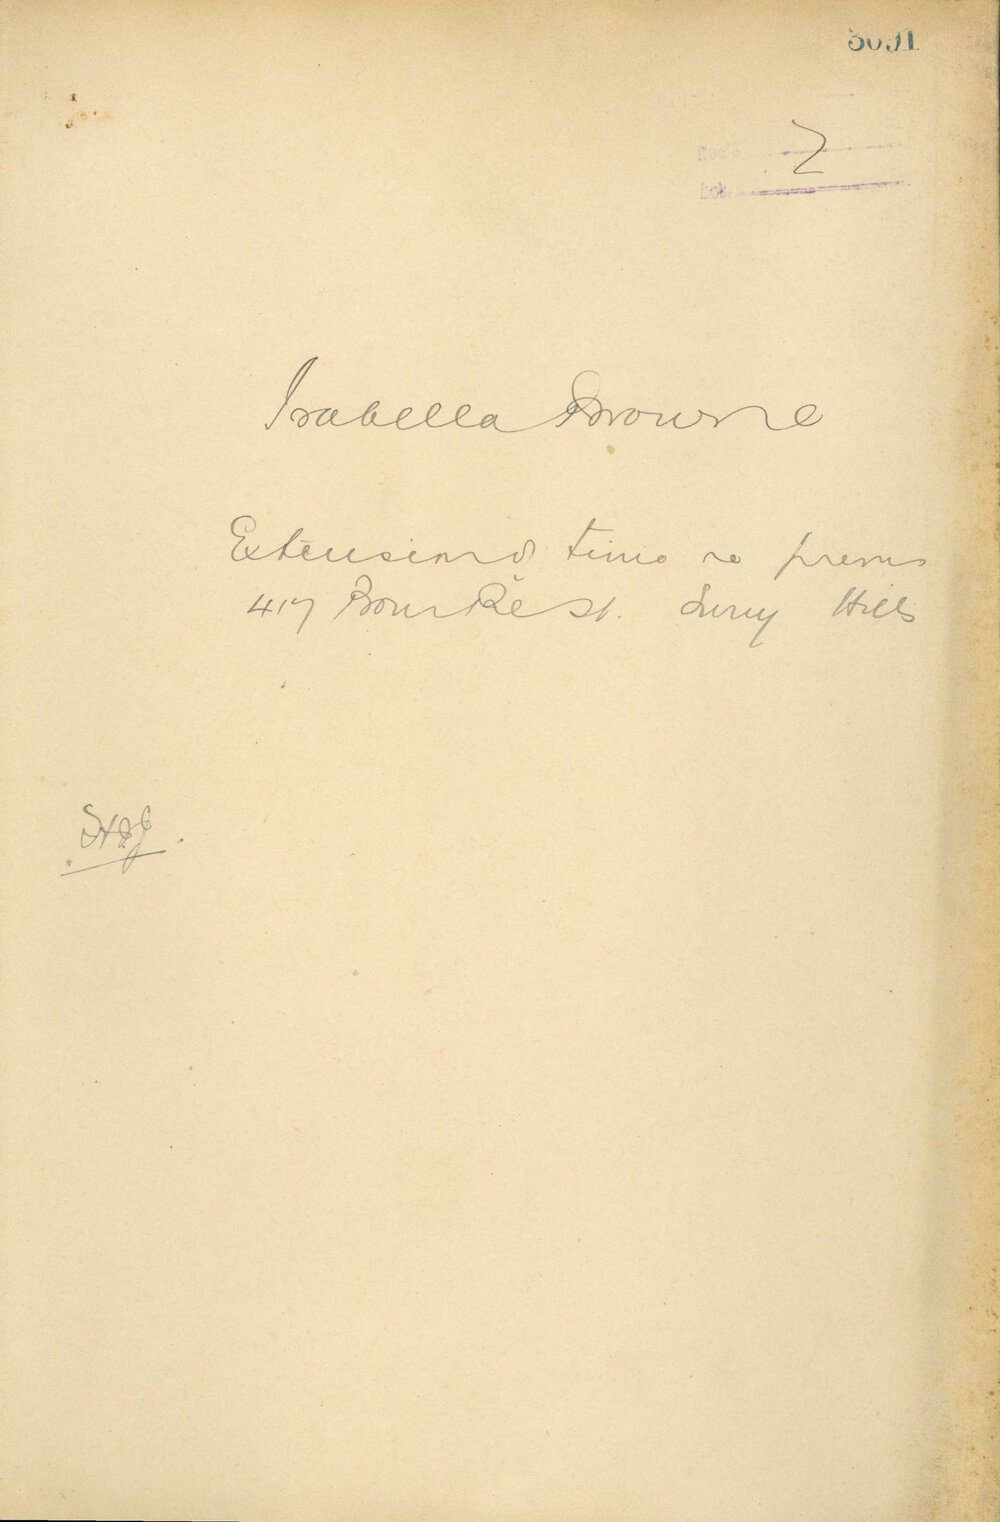 2
Isabella Browne
Extension of time re prems
417 Bourke St. Surry Hills